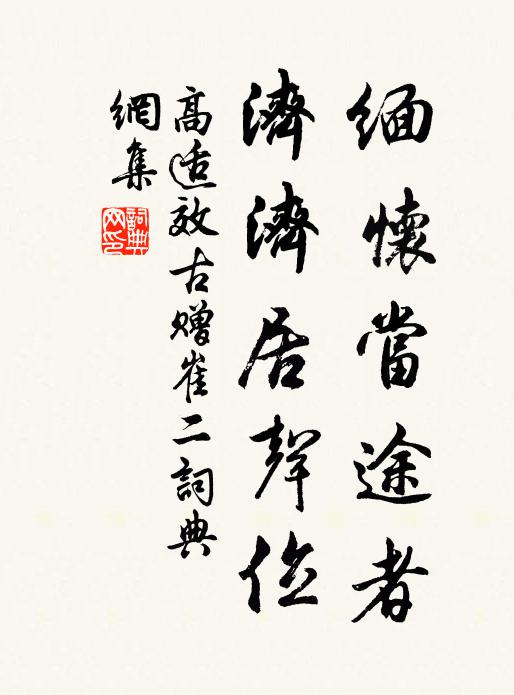 緬懷當途者
濟濟居聲位
高適效古贈崔二詞典
網集
詞典
网印